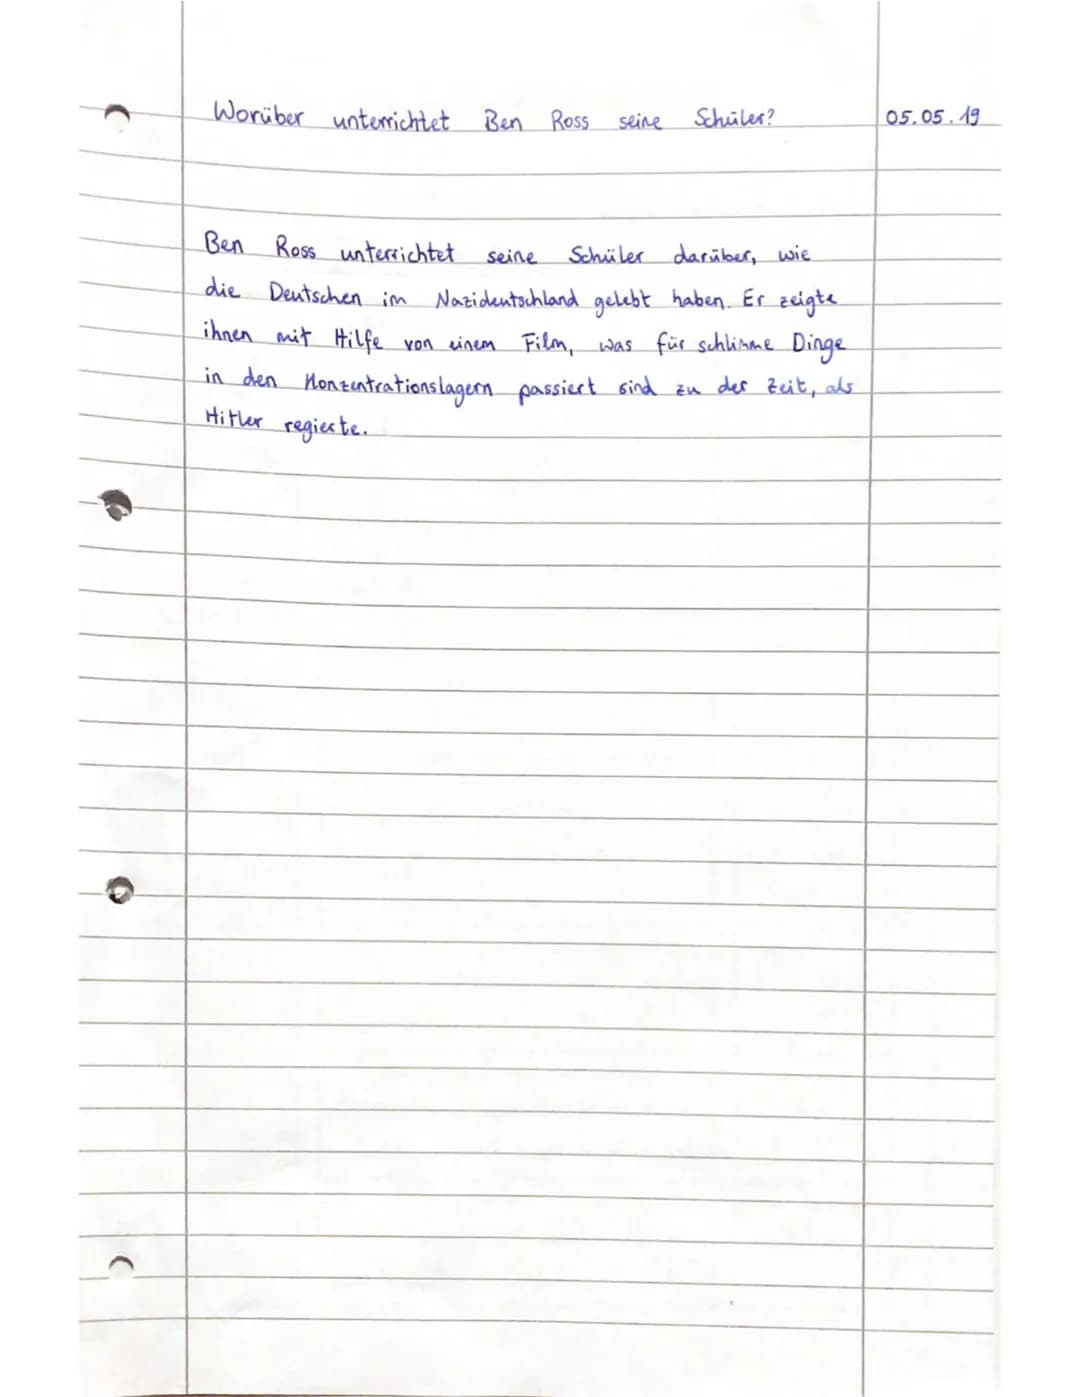 Worüber unterrichtet Ben Ross seine Schüler? 05.05.19
Ben Ross unterrichtet seine Schüler darüber, wie
die Deutschen im Nazideutschland gelebt haben. Er zeigte
ihnen mit Hilfe von einem Film, was für schlimme Dinge
in den Konzentrationslagern passiert sind zu der Zeit, als
Hitler regierte.